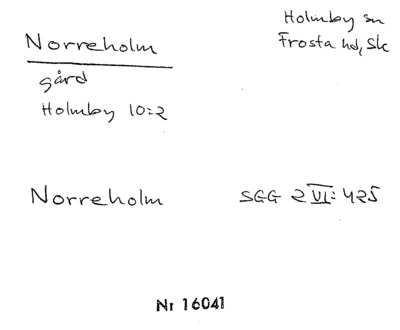 Norreholm
gård
Holmby 10:2
Holmby sn
Frosta hd, Sk
Norreholm
SGG 2 VI: 425
Nr 16041